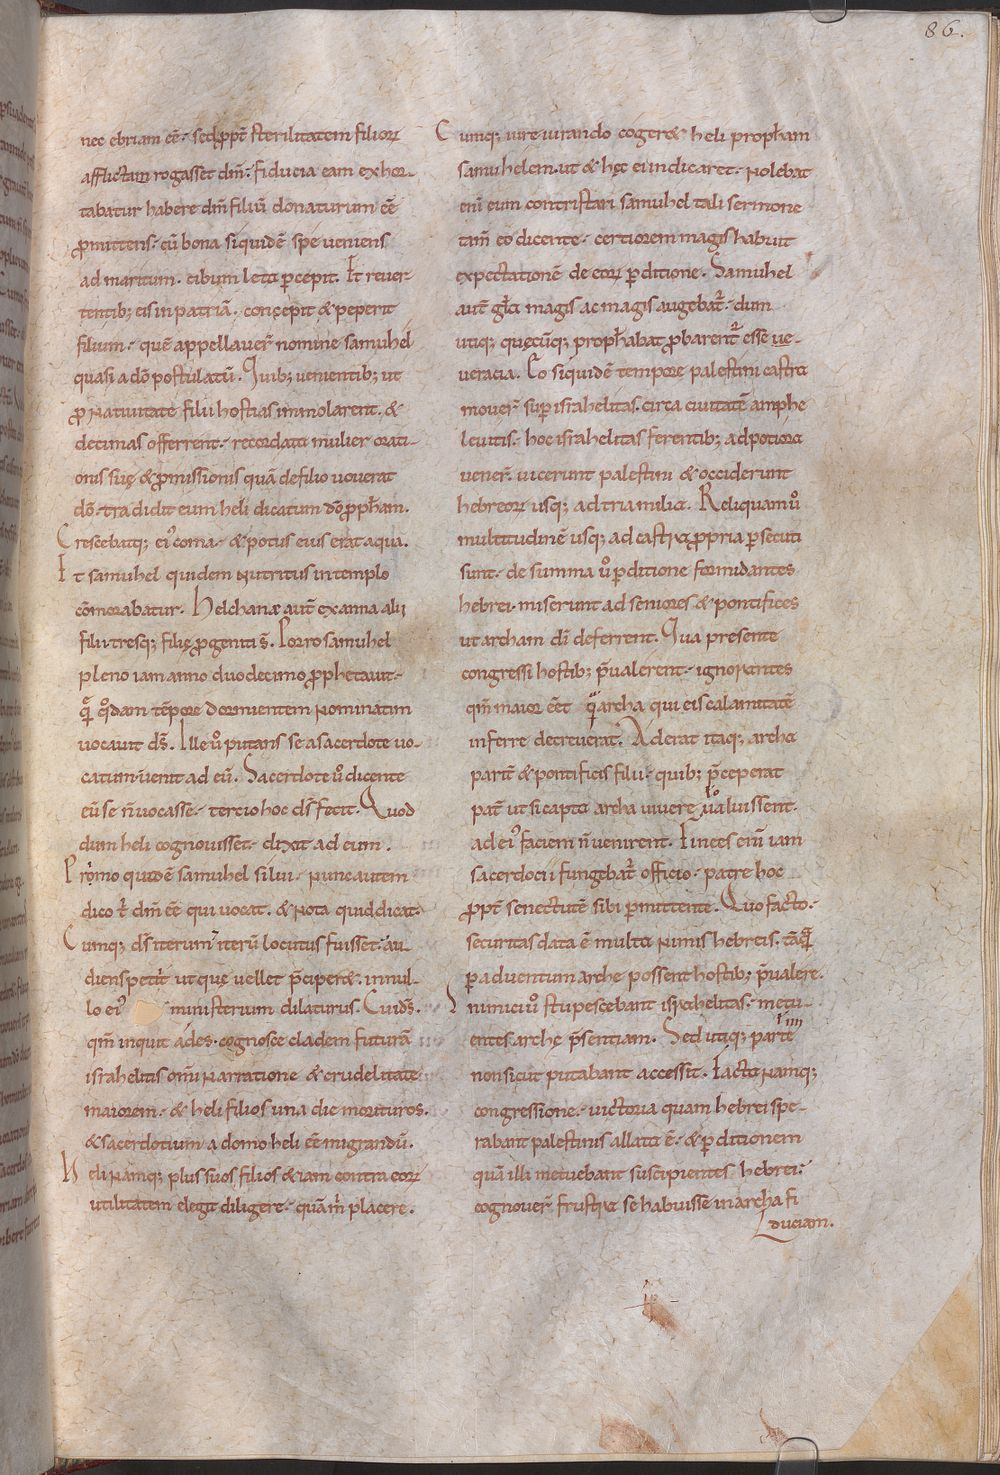 86.
nec ebriam ēē. sed ꝓpt̄ sterilitatem filioꝝ
afflictam rogasset dm̄. fiducia eam exhor-
tabatur habere dm̄ filiū donaturum ēē
ꝓmittens. cū bona siquidē spe veniens
ad maritum. cibum leta ꝑcepit. Et rever
tentib; eis in patriā. concepit & peperit
filium. quē appellaver̄ nomine samuhel
quasi a dō postulatū. Quib; venientib; ut
ꝓ nativitate filii hostias immolarent. &
decimas offerrent. recordata mulier orati-
onis suę & ꝓmissionis quā de filio voverat
dō. tradidit eum heli dicatum dō ꝓph̄am.
Crescebatq; ei᾽ coma. & potus eius erat aqua.
Et samuhel quidem nutritus in templo
cōmorabatur. Helchanę aut̄ ex anna alii
filii tresq; filię ꝓgeniti s̄. Porro samuhel
pleno iam anno duodecimo ꝓphetavit.
q̄ qͦdam tēpore dormientem nominatim
vocavit ds̄. Ille uͦ putans se a sacerdote vo-
catum. venit ad eū. Sacerdote uͦ dicente
eū se n̄ vocasse. tercio hoc ds̄ fecit. Quod
dum heli cognovisset. dixit ad eum.
Primo quidē samuhel silui. nunc autem
dico t̄ dm̄ ēē qui vocat. & nota quid dicat.
Cumq; ds̄ iterum iterū locutus fuisset. au-
diens petiit ut quę vellet p̄ciper&. in nul-
lo ei᾽ ministerium dilaturus. Cui ds̄.
qm̄ inquit ades. cognosce cladem futurā
israhelitis om̄i narratione & crudelitate
maiorem. & heli filios una die morituros.
& sacerdotium a domo heli ēē migrandū.
Heli namq; plus suos filios & iam contra eoꝝ
utilitatem elegit diligere. quā m̄ placere.
Cumq; iure iurando coger& heli proph̄am
samuhelem. ut & hec ei indicaret. nolebat
eni eum contristari samuhel tali sermone
tam̄ eo dicente. certiorem magis habuit
expectationē de eoꝝ ꝑditione. Samuhel
aut̄ gl̄a magis ac magis augebat᷑. dum
utiq; quęcūq; proph̄abat ꝓbarent᷑ esse ve-
veracia. Eo siquidē tempore palestini castra
mover̄ suꝑ israhelitas. circa civitatē amphe
levitis. hoc israhelitas ferentib; ad potiora
vener̄. vicerunt palestini & occiderunt
hebreoꝝ usq; ad tria milia. Reliquam uͦ
multitudinē usq; ad castra ꝓpria ꝑsecuti
sunt. de summa uͦ ꝑditione formidantes
hebrei. miserunt ad seniores & pontifices
ut archam dī deferrent. Qua presente
congressi hostib; p̄valerent. ignorantes
qm̄ maior ēet q̄ archa qui eis calamitatē
inferre decreverat. Aderat itaq; arche
parit̄ & pontificis filii. quib; p̄ceperat
pat̄ ut si capta archa vivere valuissent.
ad ei᾽ faciem n̄ venirent. Finees eni iam
sacerdocii fungebat᷑ officio. patre hoc
ꝓpt̄ senectutē sibi ꝑmittente. Quo facto.
securitas data ē multa nimis hebreis. tāq̄
ꝑ adventum arche possent hostib; p̄valere.
Inimici uͦ stupescebant israhelitas. metu-
entes arche p̄sentiam. Sed utiq; parte
non sicut putabant accessit. Facta namq;
congressione. victoria quam hebrei spe-
rabant palestinis allata ē. & ꝑditionem
quā illi metuebant suscipientes hebrei.
cognover̄ frustra se habuisse in archa fi
duciam.